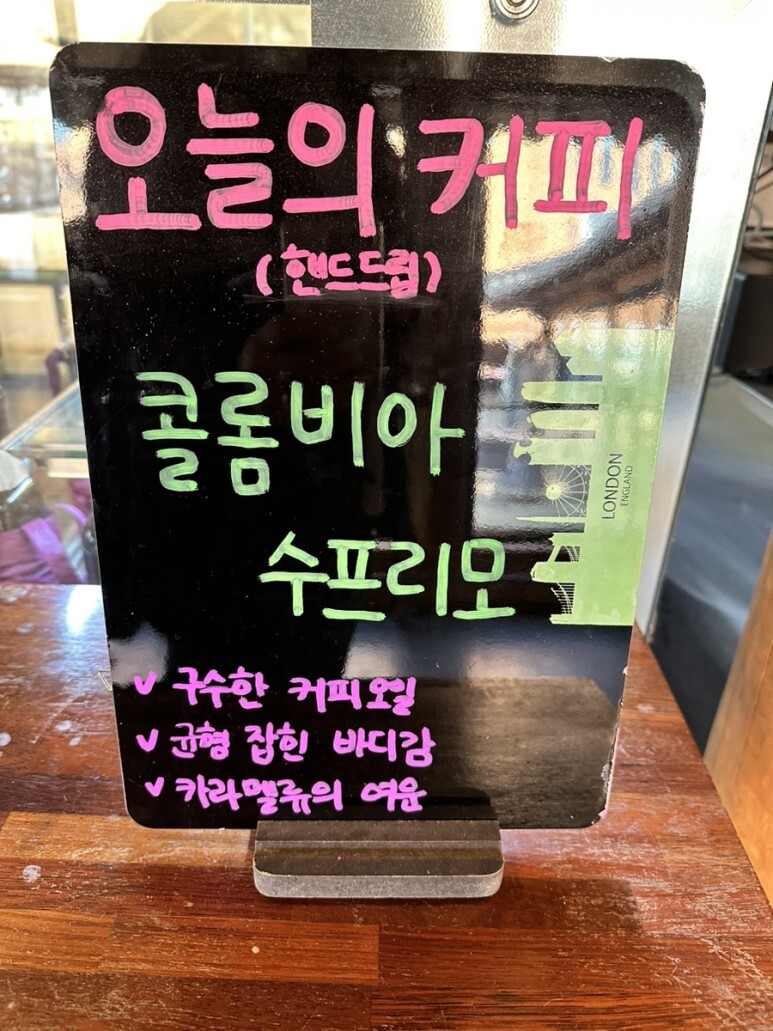 오늘의 커피
(핸드드립)
콜롬비아
수프리모
LONDON
ENGLAND
✓ 구수한 커피오일
✓ 균형 잡힌 바디감
✓ 카라멜류의 여운